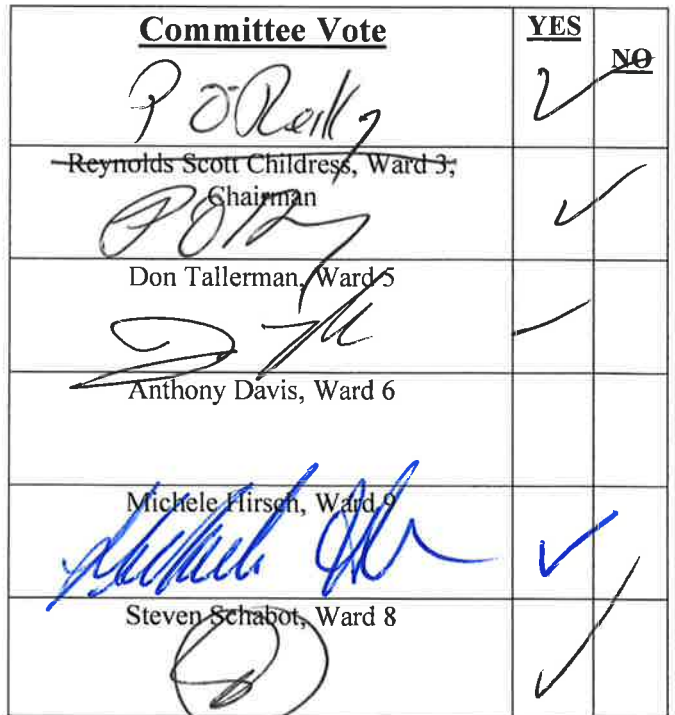 Committee Vote YES NO
P O'Reilly
Reynolds Scott Childress, Ward 3,
Chairman
Don Tallerman, Ward 5
Anthony Davis, Ward 6
Michele Hirsch, Ward 9
Steven Schabot, Ward 8